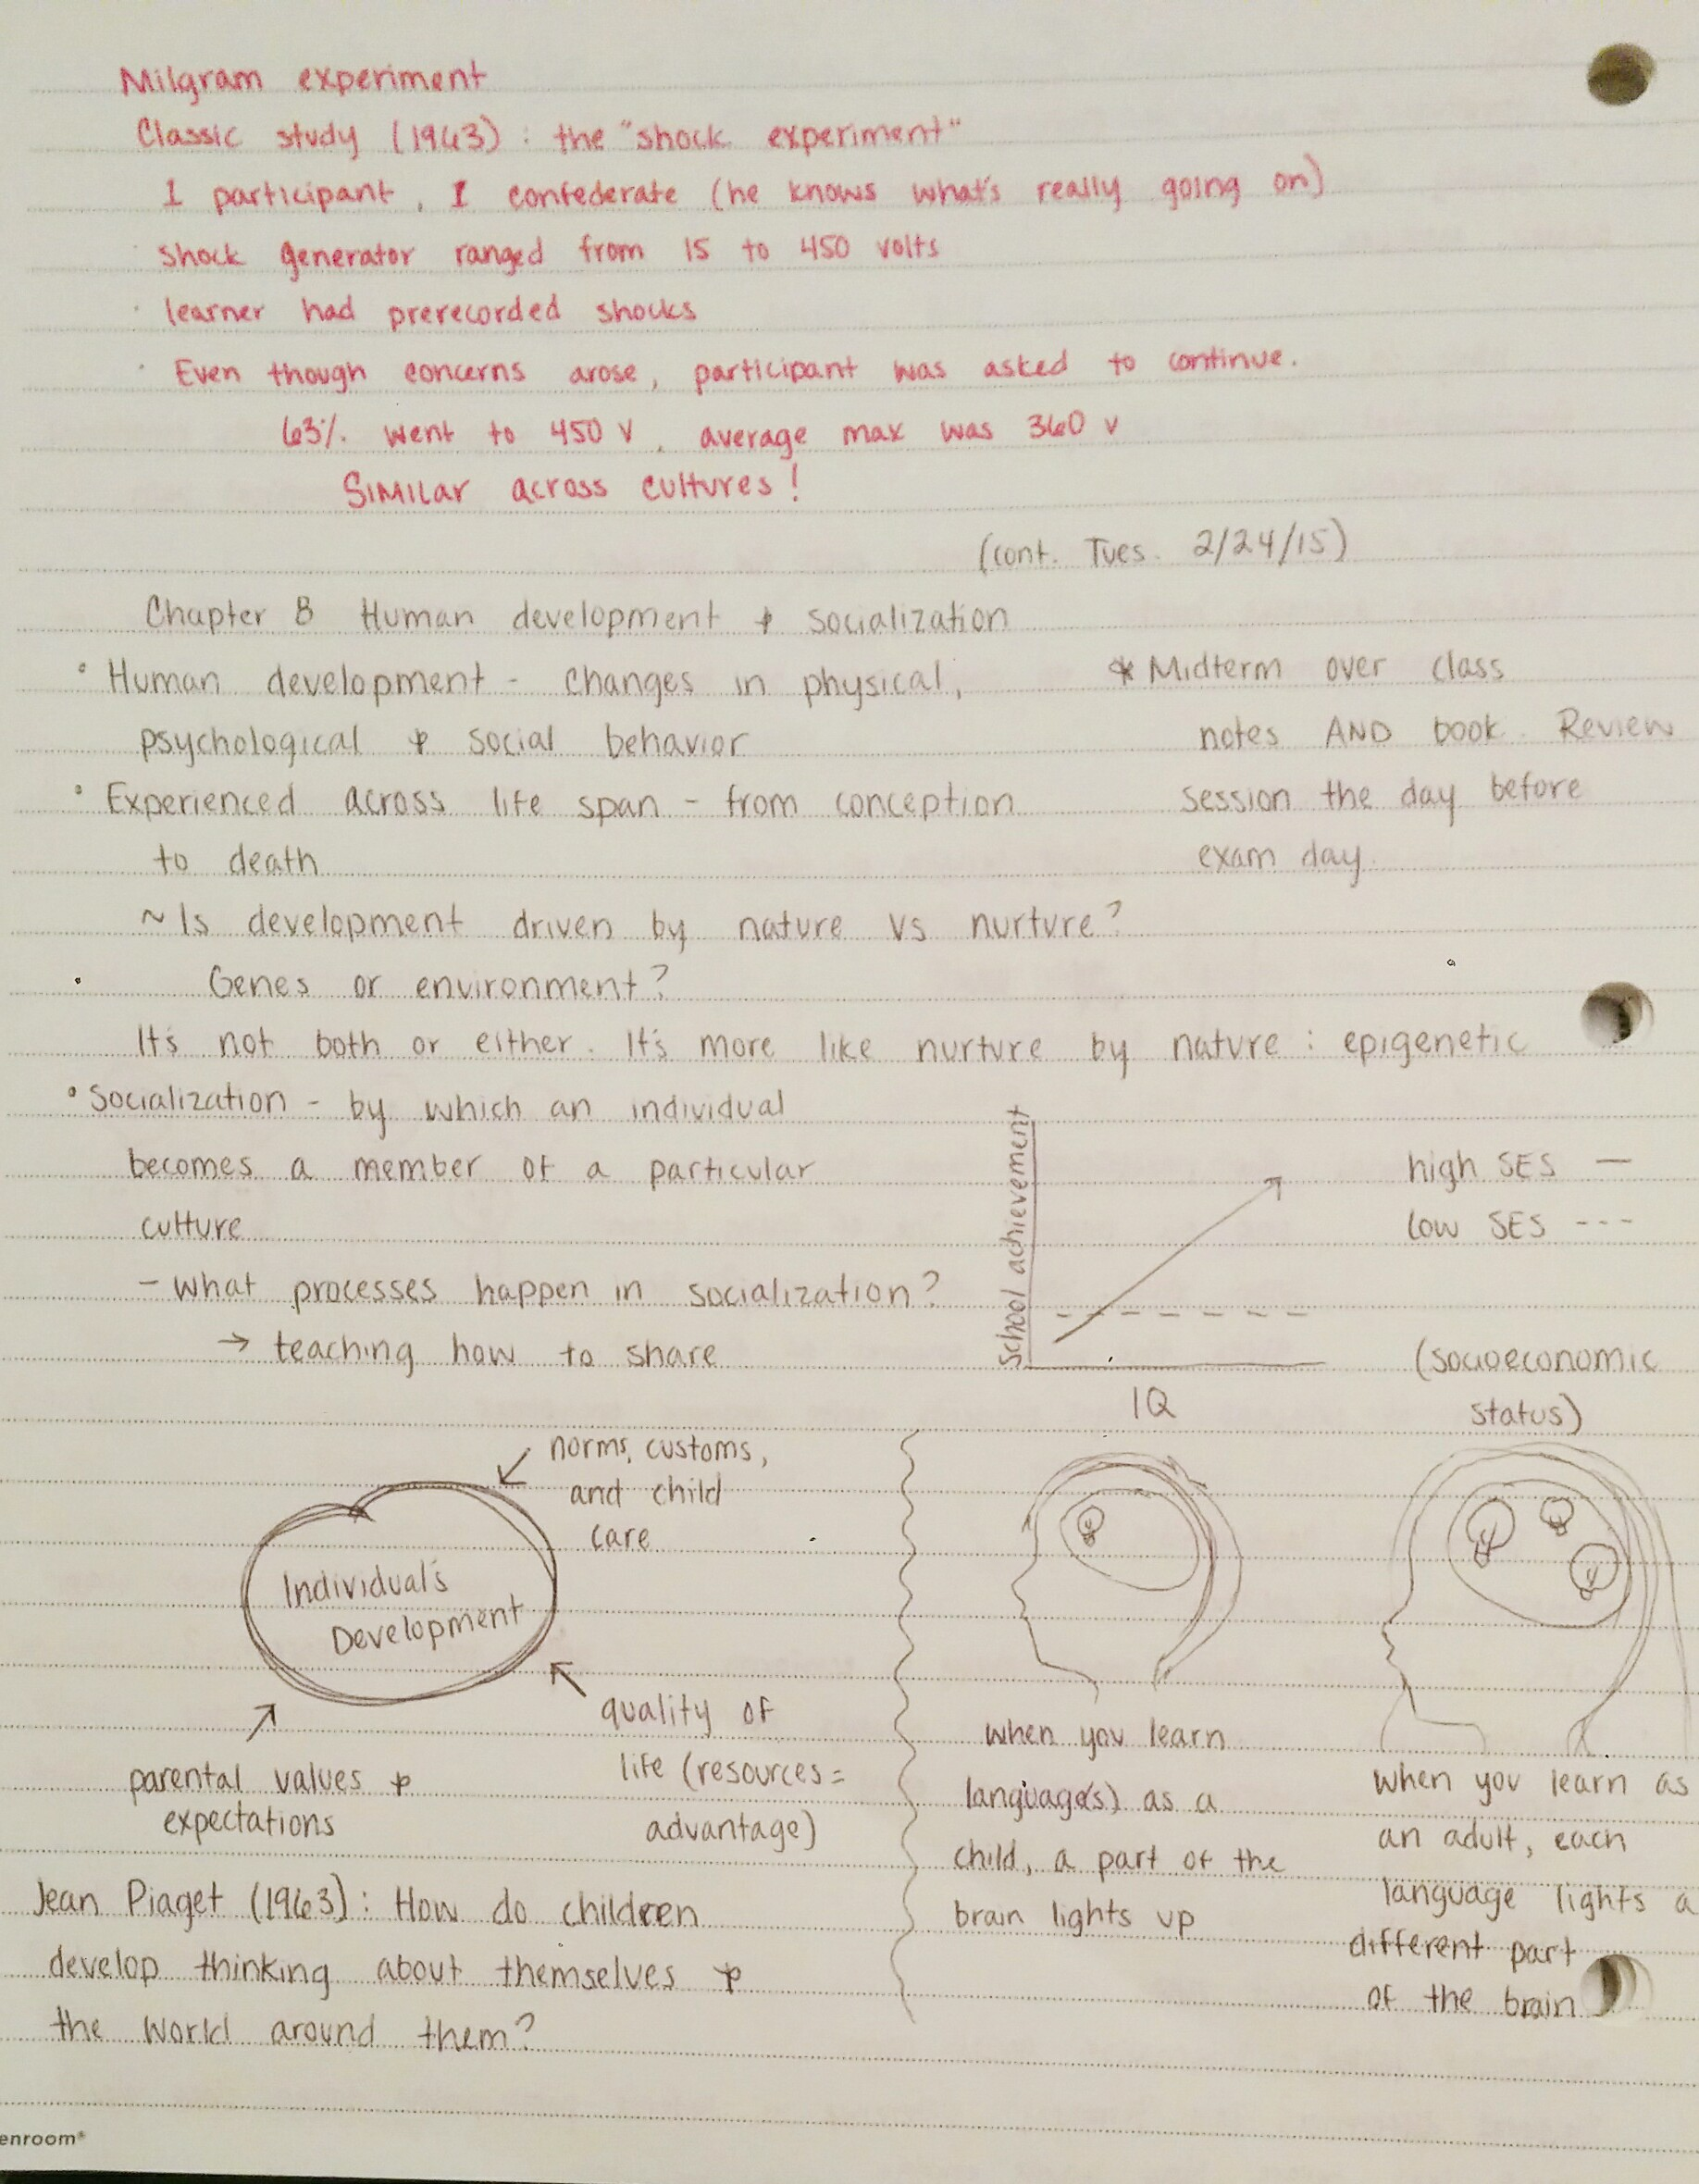 Milgram experiment
Classic study (1963) : the "shock experiment"
1 participant, 1 confederate (he knows what's really going on)
· shock generator ranged from 15 to 450 volts
· learner had prerecorded shocks
· Even though concerns arose, participant was asked to continue.
63% went to 450 V, average max was 360 v
Similar across cultures!
(cont. Tues. 2/24/15)
Chapter 8 Human development & socialization
• Human development - changes in physical,
psychological & social behavior
• Experienced across life span - from conception
to death
* Midterm over class
notes AND book. Review
session the day before
exam day.
~ Is development driven by nature vs nurture?
Genes or environment?
It's not both or either. It's more like nurture by nature : epigenetic
• Socialization - by which an individual
becomes a member of a particular
culture
- what processes happen in socialization?
→ teaching how to share
School achievement
IQ
high SES —
low SES ---
(socioeconomic
status)
norms, customs,
and child
care
Individual's
Development
quality of
life (resources =
advantage)
parental values &
expectations
when you learn
language(s) as a
child, a part of the
brain lights up
when you learn as
an adult, each
language lights a
different part
of the brain
Jean Piaget (1963): How do children
develop thinking about themselves &
the world around them?
enroom®